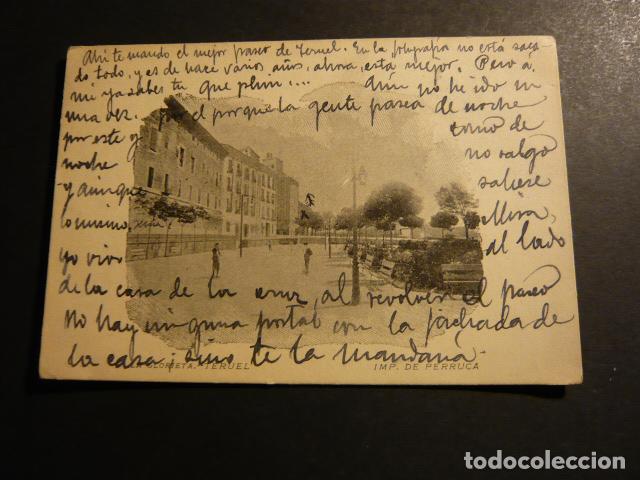 Ahí te mando el mejor paseo de Teruel. En la fotografía no está saca-
do todo, y es de hace varios años, ahora, esta mejor. Pero a
mi ya sabes tu que plim.... Aún no he ido ni
una vez. por el porque la gente pasea de noche
por este y como de
noche no salgo
y aunque saliese
lo mismo, Mira,
yo vivo al lado
de la casa de la cruz, al revolver el paseo
No hay ninguna postal con la fachada de
la casa; sino te la mandaria.
GLORIETA. TERUEL IMP. DE PERRUCA
todocoleccion.net